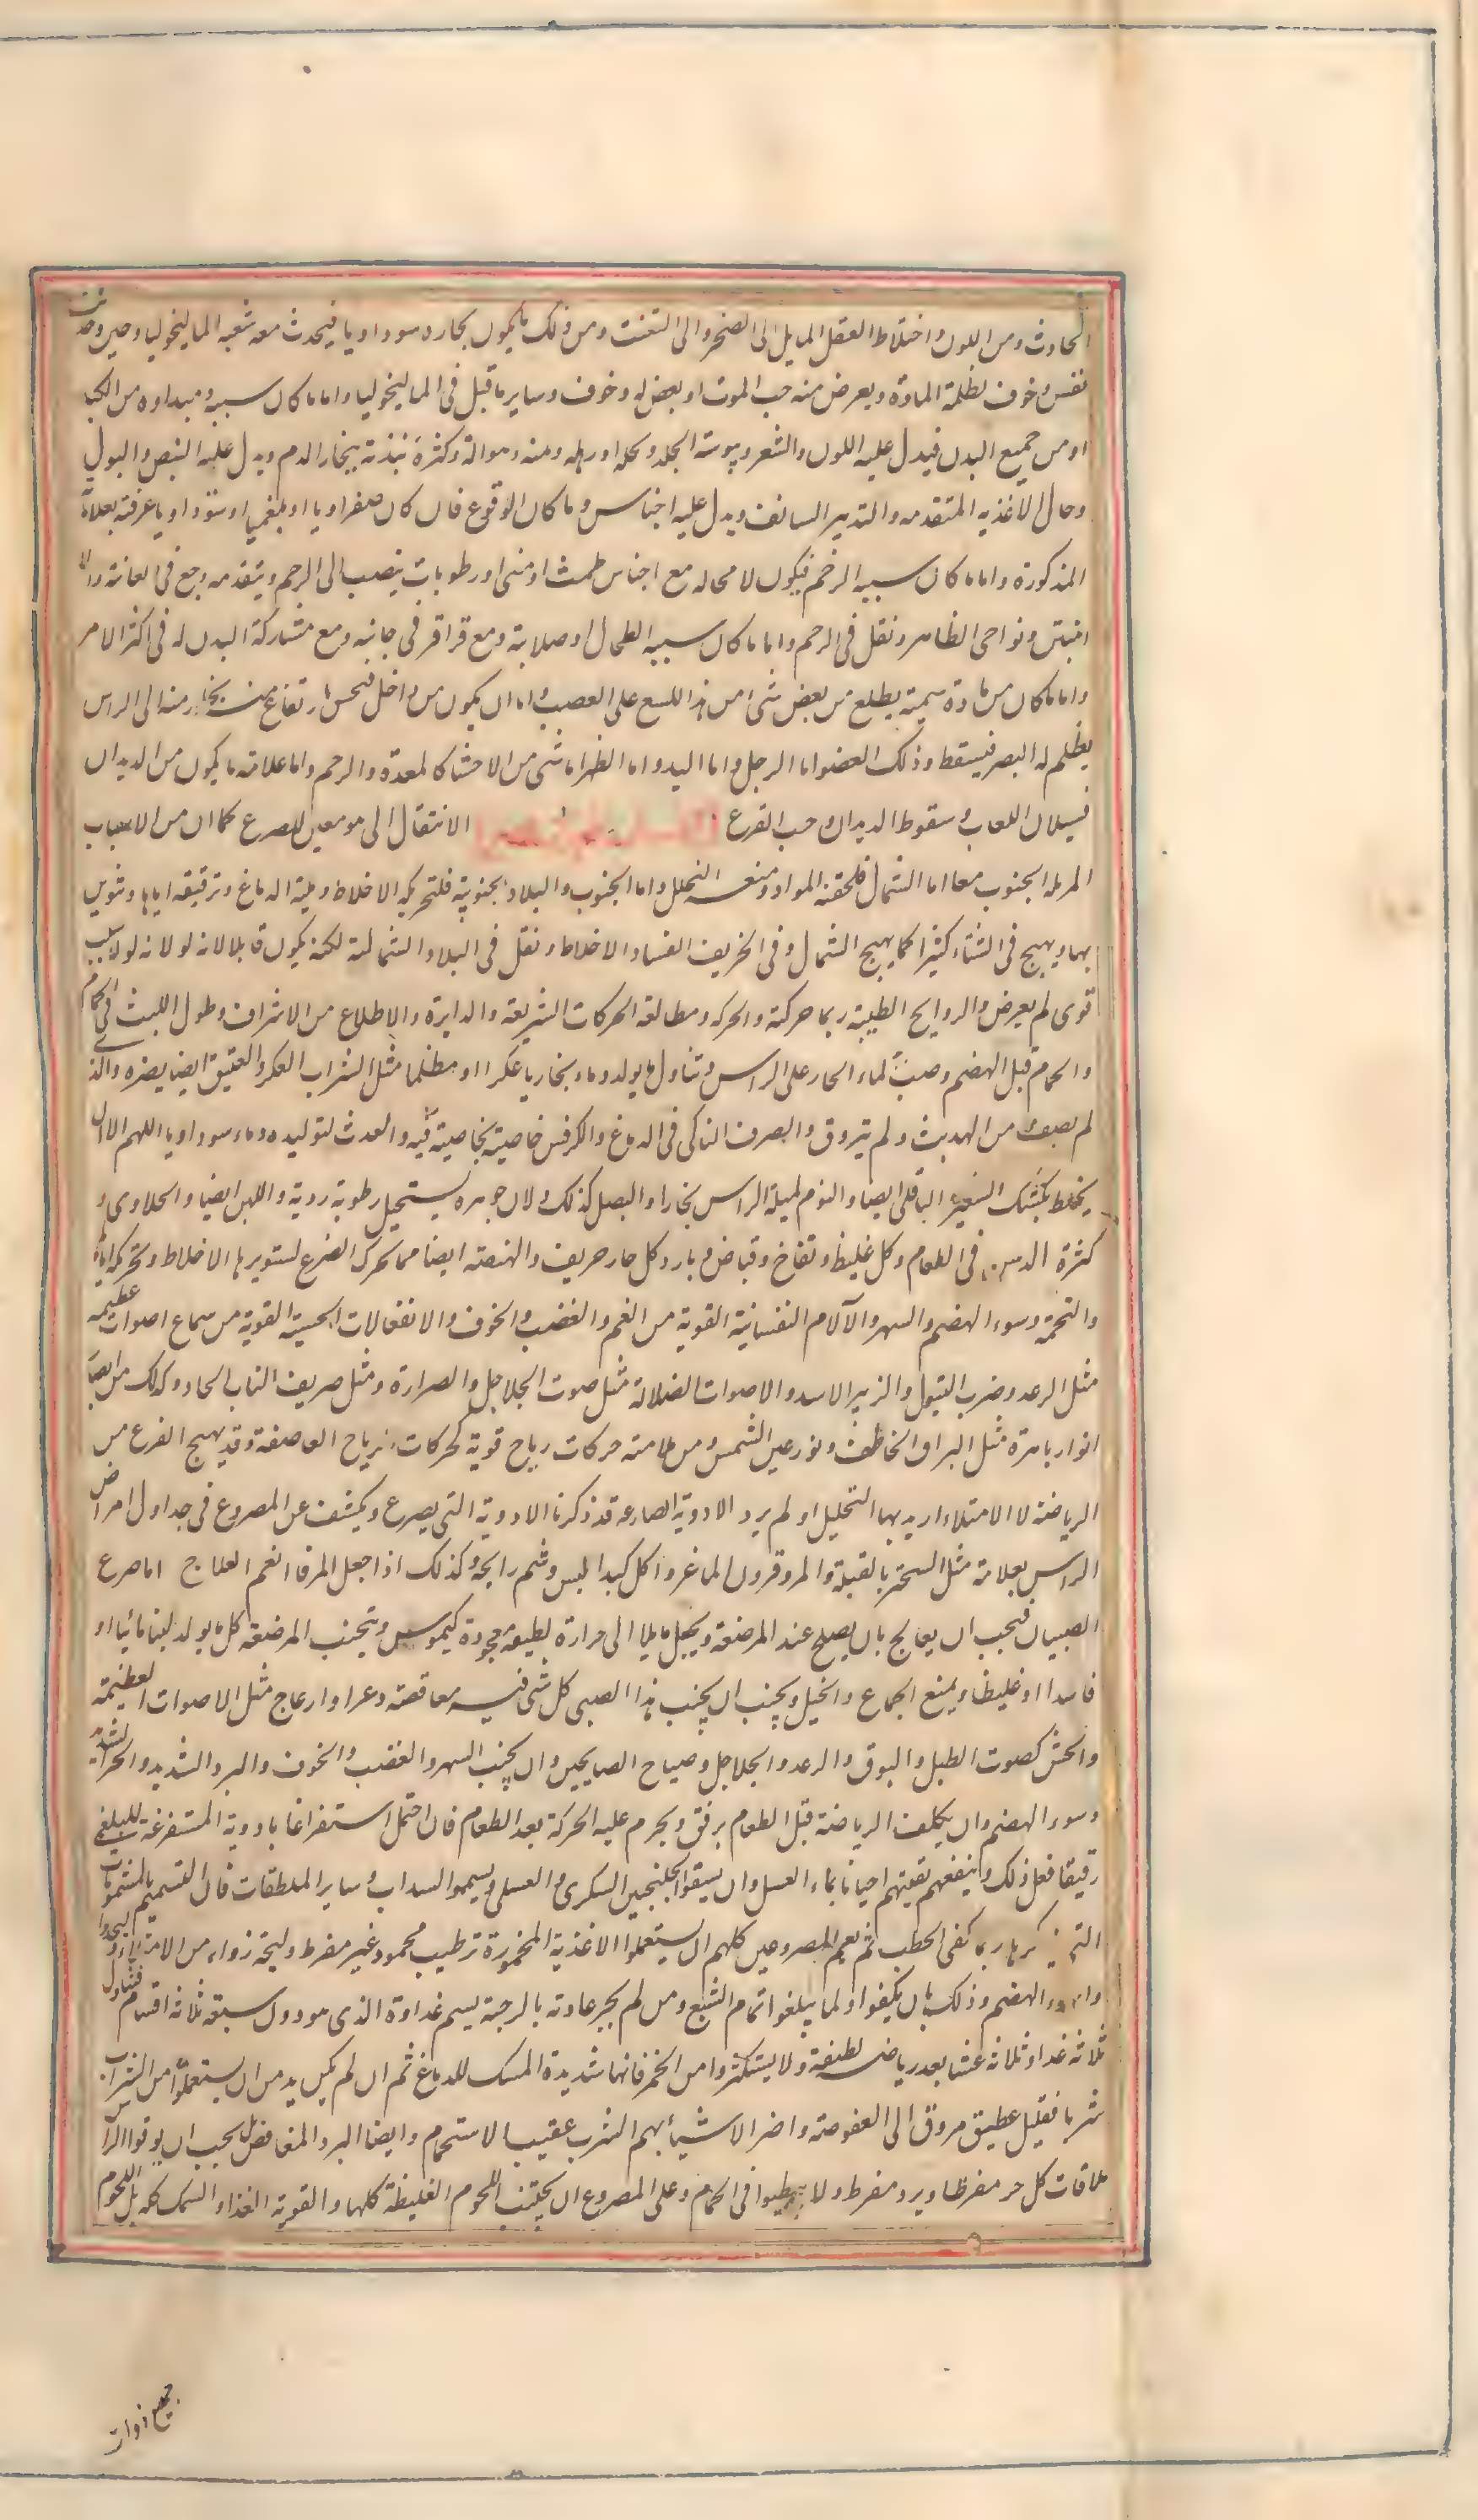 الحادث ومن اللون واختلاط العقل المايل الى الضجر والى التعنت ومن ذلك ما يكون بخاره سوداويا فيحدث معه شعبه الماليخوليا وحين وخبث
نفس وخوف لظلمة المادة ويعرض منه حب الموت او بعض له وخوف وساير ما قيل فى الماليخوليا واما ما كان سببه ومبداوه من الكبد
او من جميع البدن فيدل عليه اللون والشعر ويبوسة الجلد وكله او رهله ومنه وهواله وكثرة نبذته ببخار الدم ويدل عليه النبض والبول
وحال الاغذيه المتقدمه والتدبير السالف ويدل عليه اجناس وما كان الوقوع فان كان صفراويا او بلغميا او سوداويا عرفته بعلاماته
المذكورة واما ما كان سببه الرحم فيكون لا محاله مع اجناس طمث او منى او رطوبات ينصب الى الرحم ويتقدمه وجع فى العانة والا
اغبتس ونواحى الظاهر ونقل فى الرحم واما ما كان سببه الطحال او صلابة ومع قراقر فى جانبه ومع مشاركة البدن له فى اكثر الامر
واما ما كان من مادة سمية يطلع من بعض شئ من هذا اللسع على العصب واما ان يكون من داخل فيحس بارتفاع بخار منه الى الراس
يظلم له البصر فيسقط وذلك العضو اما الرجل واما اليد واما الظهر اما شئ من الاحشا كالمعدة والرحم واما علامته ما يكون من الديدان
فسيلان اللعاب وسقوط الديدان وحب القرع الانتقال الى مومعين للصرع كما ان من الاسباب
المرله الجنوب معا اما الشمال فلحقنه المواد ومنعه التحلل واما الجنوب والبلاد الجنوبية فلتحريكه الاخلاط وملية الدماغ وترقيقه اياها وتثوير
بها ويهيج فى الشتاء كثيرا كما يهيج الشمال وفى الخريف لفساد الاخلاط ونقل فى البلاد الشمالية لكنه يكون قابلا لانه لولا سبب
قوى لم يعرض والروايح الطيبة ربما حركته والحركه ومطالعه الحركات السريعه والدايرة والاطلاع من الاشراف وطول اللبث فى الحمام
والحمام قبل الهضم وصب الماء الحار على الراس وتناول ما يولد دما وبخاريا عكرا او مظلما مثل الشراب العكر والعتيق ايضا يضره والذ
لم يصف من الهديث ولم يتروق والصرف الناكى فى الدماغ والكرفس خاصية بخاصية فيه والعدث لتوليده دماء سوداويا اللهم الا ان
يخلط بكشك الشعير والباقلى ايضا والثوم لميله الراس بخارا والبصل كذلك ولان جوهره يستحيل رطوبة رديه واللبن ايضا والحلاوى و
كثرة الدسم فى الطعام وكل غليظ ونفاخ وقباض وبارد كل حار حريف والهيضه ايضا مما يحرك الصرع لتثويرها الاخلاط وتحريكه اياه
والتخمة وسوء الهضم والسهر والآلام النفسانية القوية من الغم والغضب والخوف والانفعالات الحسية القوية من سماع اصوات عظيمه
مثل الرعد وضرب الطبول والزبير الاسد والاصوات الصلالة مثل صوت الجلاجل والصرارة ومثل صريف الناب الحاد وكذلك من ابصار
انوار باهرة مثل البراق الخاطف ونور عين الشمس ومن ملامته حركات رياح قوية كحركات الرياح العاصفة وقد يهيج الصرع من
الرياضة لا الامتلاء اريد بها التحليل او لم يرد الادوية الصارعه قد ذكرنا الادوية التى يصرع ويكشف عن المصروع فى جداول امراض
الراس بعلامة مثل التبخر بالقيلة والمر وقرون الماعز واكل كبد التيس وشم رايحته وكذلك اذا جعل المر فى انفهم العلاج اما صرع
الصبيان فيجب ان يعالج بان يصلح عند المرضعة ويجعل مايلا الى حرارة لطيفة مجودة كيموس وتجنب المرضعه كل ما يولد لبنا مائيا او
فاسدا او غليظا ويمنع الجماع والخيل ويجب ان يجنب هذا الصبى كل شى فيه معافصه وعرا وارعاج مثل الاصوات العظيمة
والحش كصوت الطبل والبوق والرعد والجلاجل وصياح الصايحين وان يجنب السهر والغضب والخوف والبرد الشديد والحر الشديد
وسوء الهضم وان يكلف الرياضة قبل الطعام برفق ويحرم عليه الحركة بعد الطعام فان احتمل استفراغا بادوية المستفرغة للبلغم
رقيقا فعل ذلك وينفعهم تقيتهم احيانا بماء العسل وان يسقوا الجلنجبين السكرى والعسلى ويسموا السداب وساير الملطفات فان التسميم بالمشمومات
كرها ربما كفى الخطب ثم يعم المصروعين كلهم ان يستعملوا الاغذية المحمودة ترطيب محمود غير مفرط وليحترزوا من الامتلاء
الهضم وذلك بان يكيفوا ولما يبلغوا تمام الشبع ومن لم يجر عادته بالرجبة يسم غداوة الذى هو دون سبعه ثلاثه اقسام فتناول
ثلاثه غدا وثلاثه عشا بعد رياضه لطيفة ولا يستكثروا من الخمر فانها شديدة المسك للدماغ ثم ان لم يكن بد من ان يستعملوا من الشراب
شربا فقليل عطيق مروق الى العفوصة واضر الاشياء بهم الشرب عقيب الاستحمام وايضا البرد المغافض يجب ان يوقوا الراس
ملاقات كل حر مفرظا وبرد مفرط ولا يبطيوا فى الحمام وعلى المصروع ان يجتنب اللحوم الغليظة كلها والقوية الغذا والسمك كله بل اللحوم
جميع ذوات